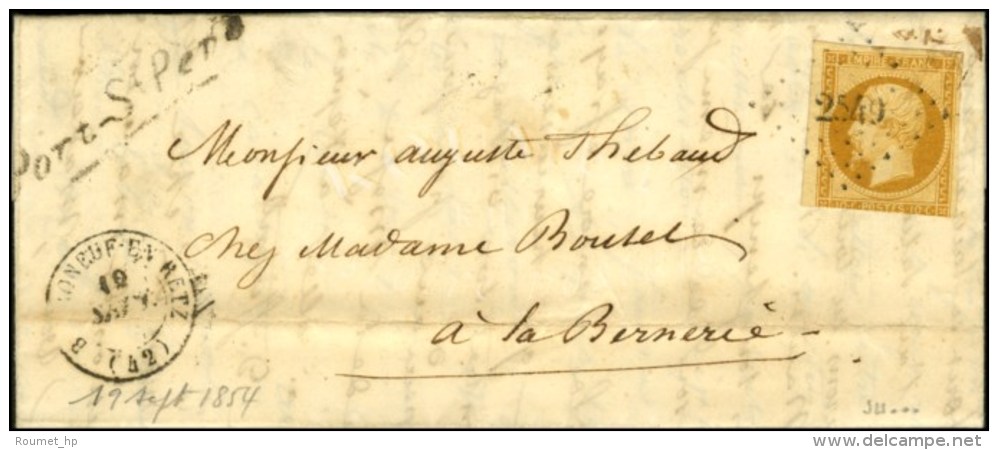 Port-St Père
EMPIRE FRANC
2549
10 C POSTES 10 C
Monsieur auguste Thebaud
chez Madame Boutet
à la Bernerie
B GNEUF-EN-RETZ
19
(42)
19 sept 1854
Roumet_hp
delcampe.net